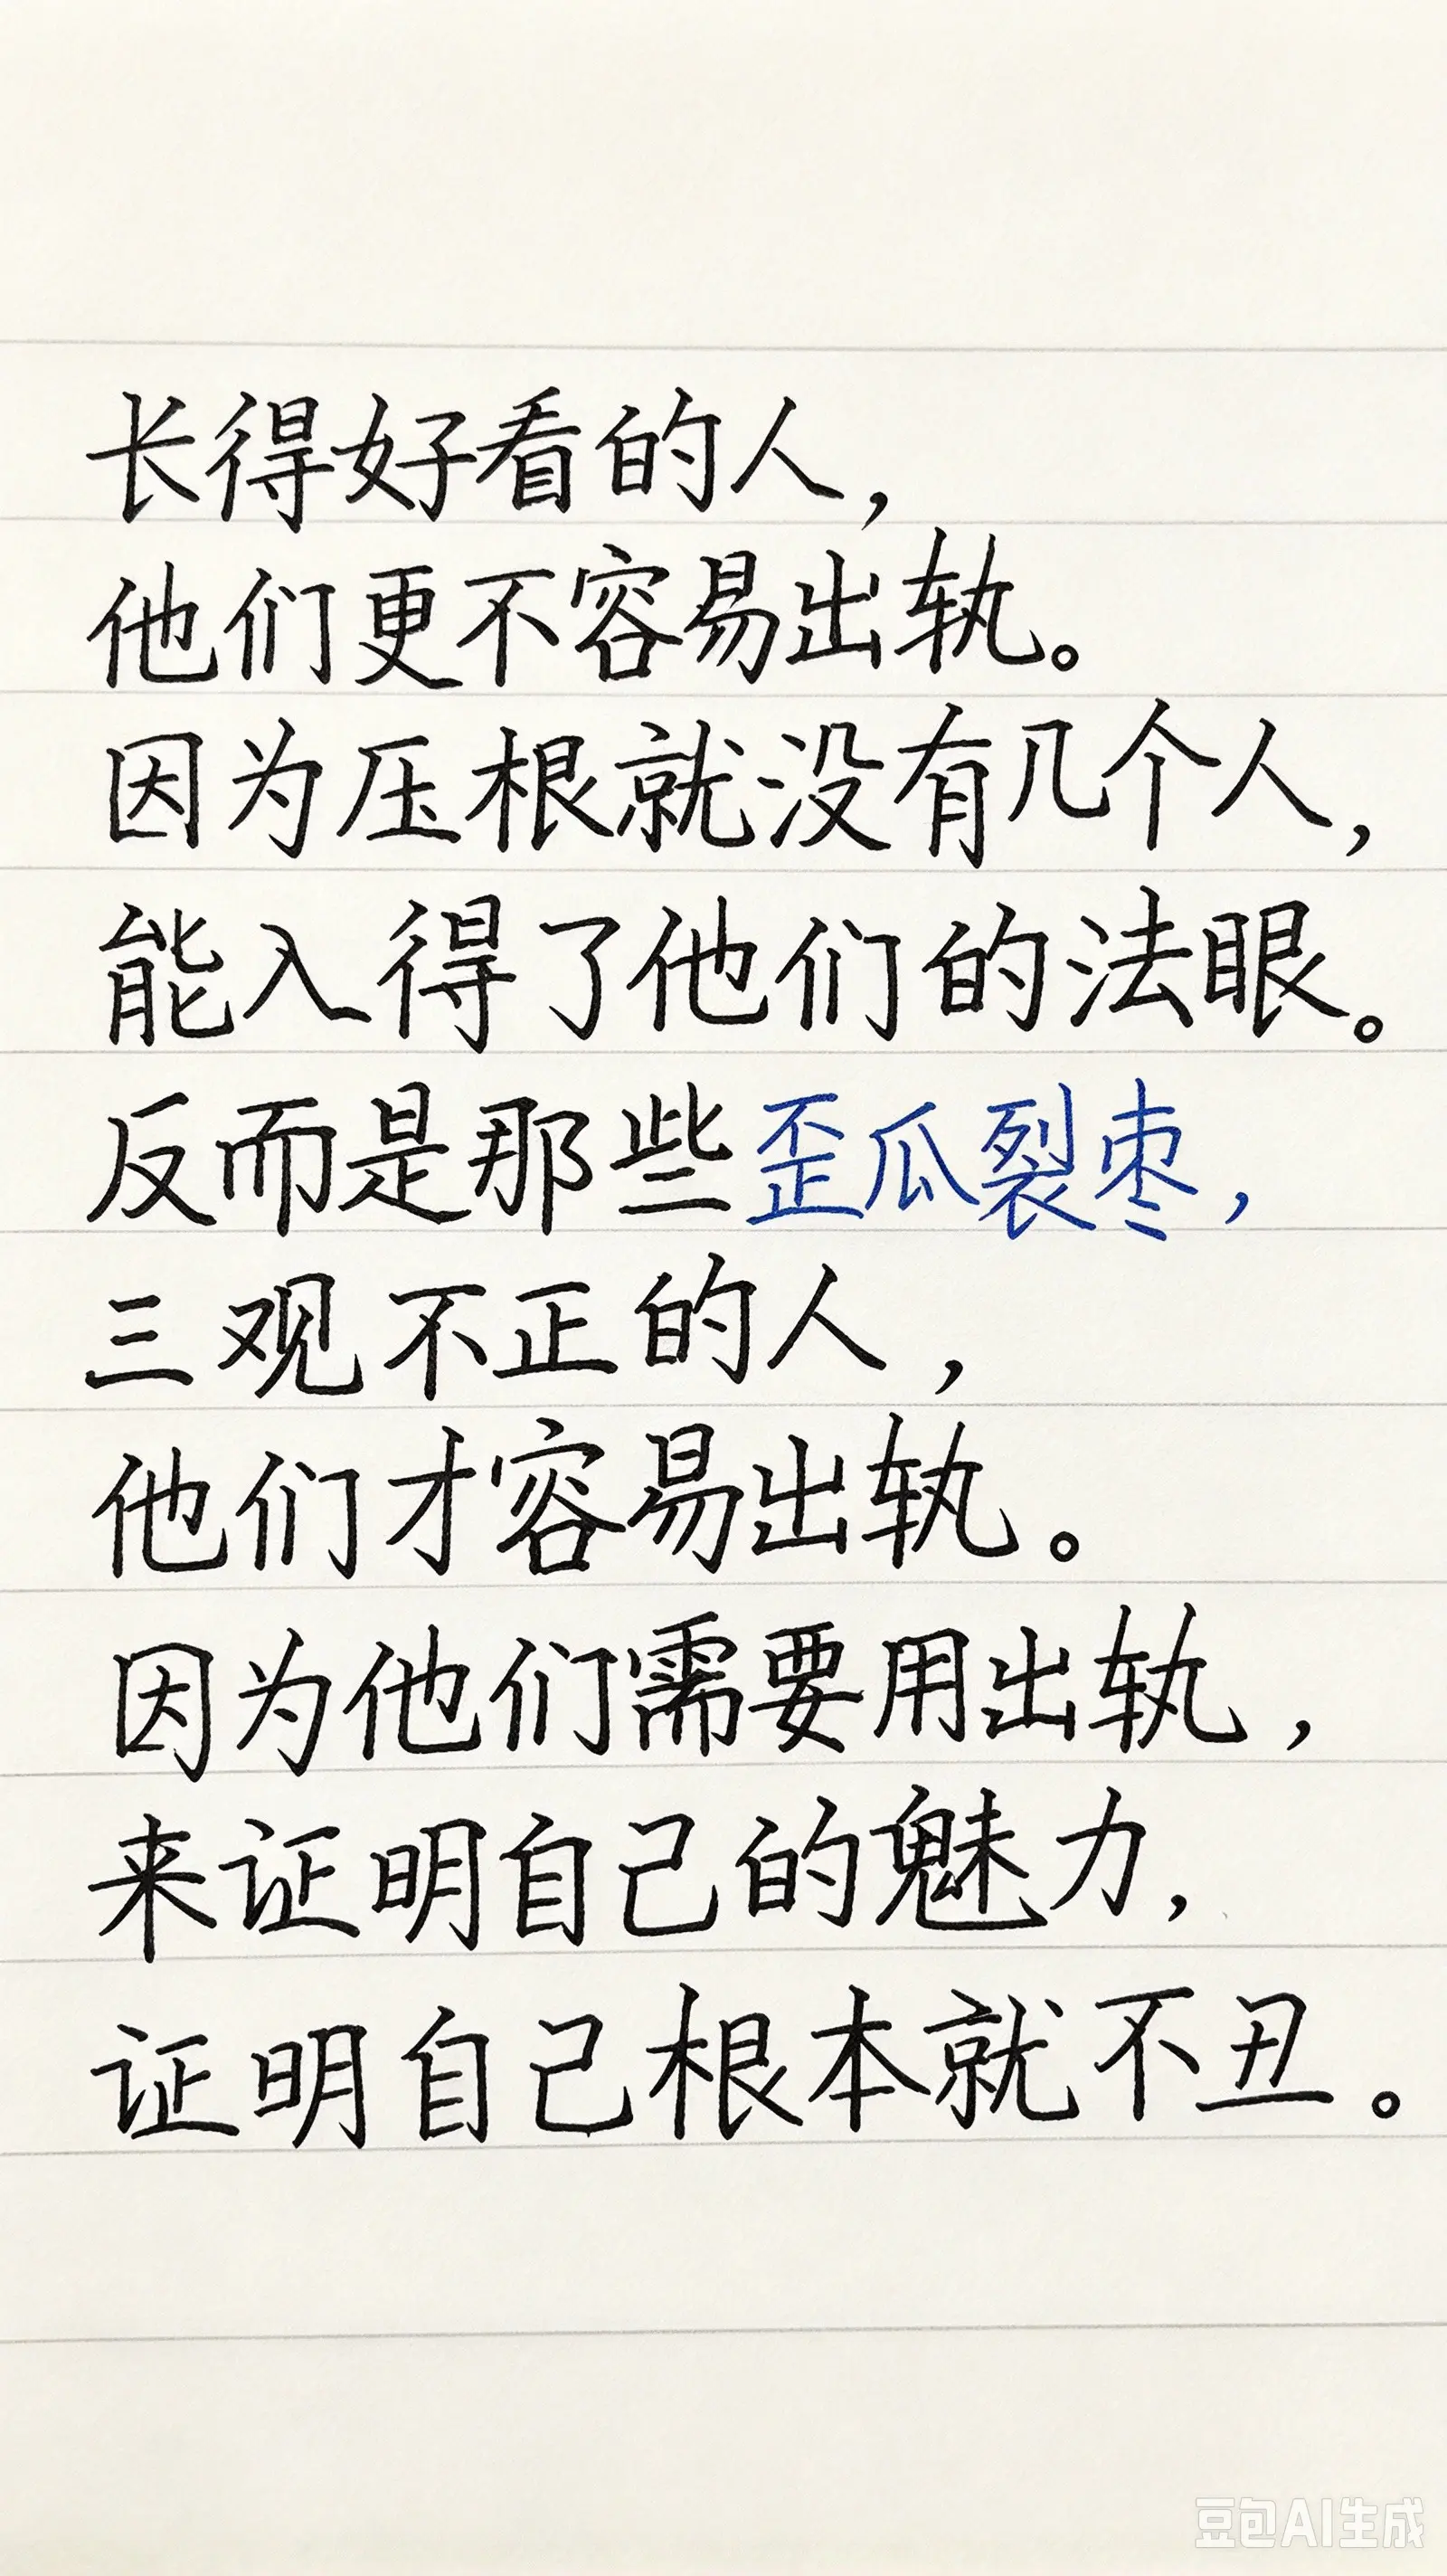 长得好看的人，
他们更不容易出轨。
因为压根就没有几个人，
能入得了他们的法眼。
反而是那些歪瓜裂枣，
三观不正的人，
他们才容易出轨。
因为他们需要用出轨，
来证明自己的魅力，
证明自己根本就不丑。
豆包AI生成